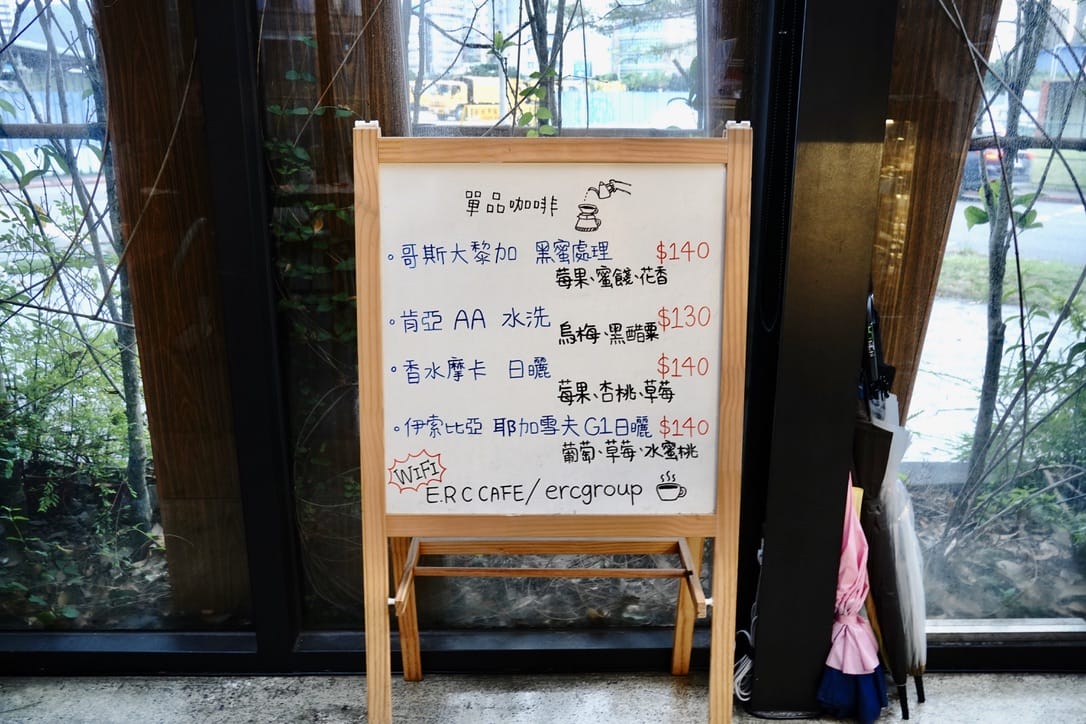 單品咖啡
哥斯大黎加 黑蜜處理 $140
莓果、蜜餞、花香
肯亞 AA 水洗 $130
烏梅、黑醋粟
香水摩卡 日曬 $140
莓果、杏桃、草莓
伊索比亞 耶加雪夫 G1日曬 $140
葡萄、草莓、水蜜桃
WIFI
E.R.C CAFE/ercgroup